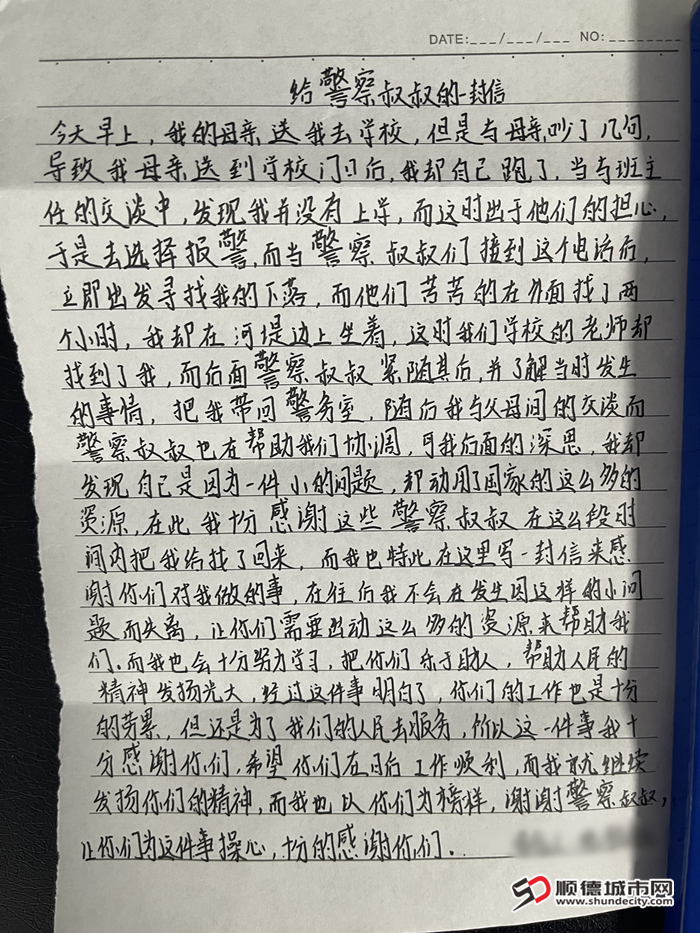 DATE:___/___/___ NO:________
给警察叔叔的一封信
今天早上，我的母亲送我去学校，但是与母亲吵了几句，
导致我母亲送到学校门口后，我却自己跑了，当与班主
任的交谈中，发现我并没有上学，而这时出于他们的担心，
于是去选择报警，而当警察叔叔们接到这个电话后，
立即出发寻找我的下落，而他们苦苦的在外面找了两
个小时，我却在河堤边上坐着，这时我们学校的老师却
找到了我，而后面警察叔叔紧随其后，并了解当时发生
的事情，把我带回警务室，随后我与父母间的交谈而
警察叔叔也在帮助我们协调，可我后面的深思，我却
发现自己是因为一件小的问题，却动用了国家的这么多的
资源，在此我十分感谢这些警察叔叔在这么段时
间内把我给找了回来，而我也特此在这里写一封信来感
谢你们对我做的事，在往后我不会在发生因这样的小问
题而失离，让你们需要出动这么多的资源来帮助我
们．而我也会十分努力学习，把你们乐于助人，帮助人民的
精神发扬光大，经过这件事明白了，你们的工作也是十分
的劳累，但还是为了我们的人民去服务，所以这一件事我十
分感谢你们，希望你们在日后工作顺利，而我就继续
发扬你们的精神，而我也以你们为榜样，谢谢警察叔叔，
让你们为这件事操心，十分的感谢你们．
顺德城市网
www.shundecity.com